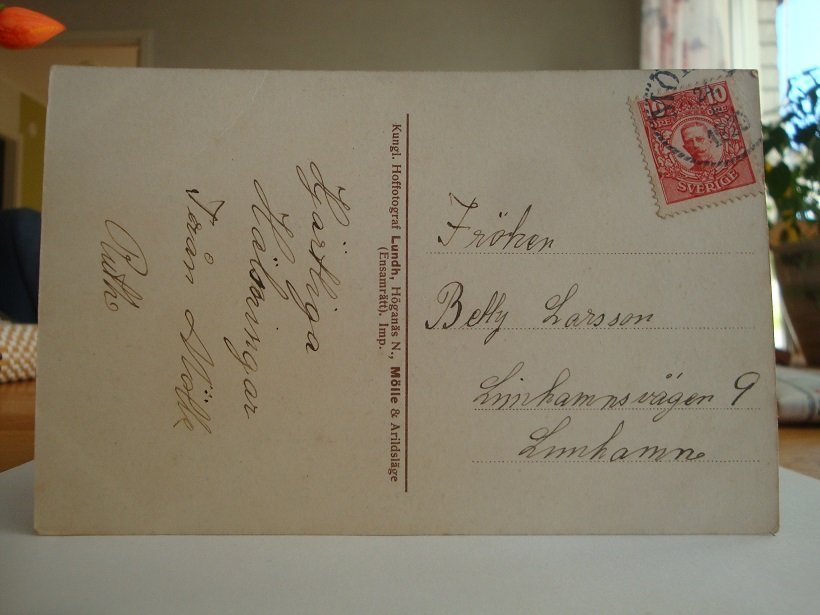 Hjärtliga
Hälsningar
Från Mölle
Ruth
Kungl. Hoffotograf Lundh, Höganäs N., Mölle & Arildsläge
(Ensamrätt). Imp.
10
SVERIGE
Fröken
Betty Larsson
Limhamnsvägen 9
Limhamn